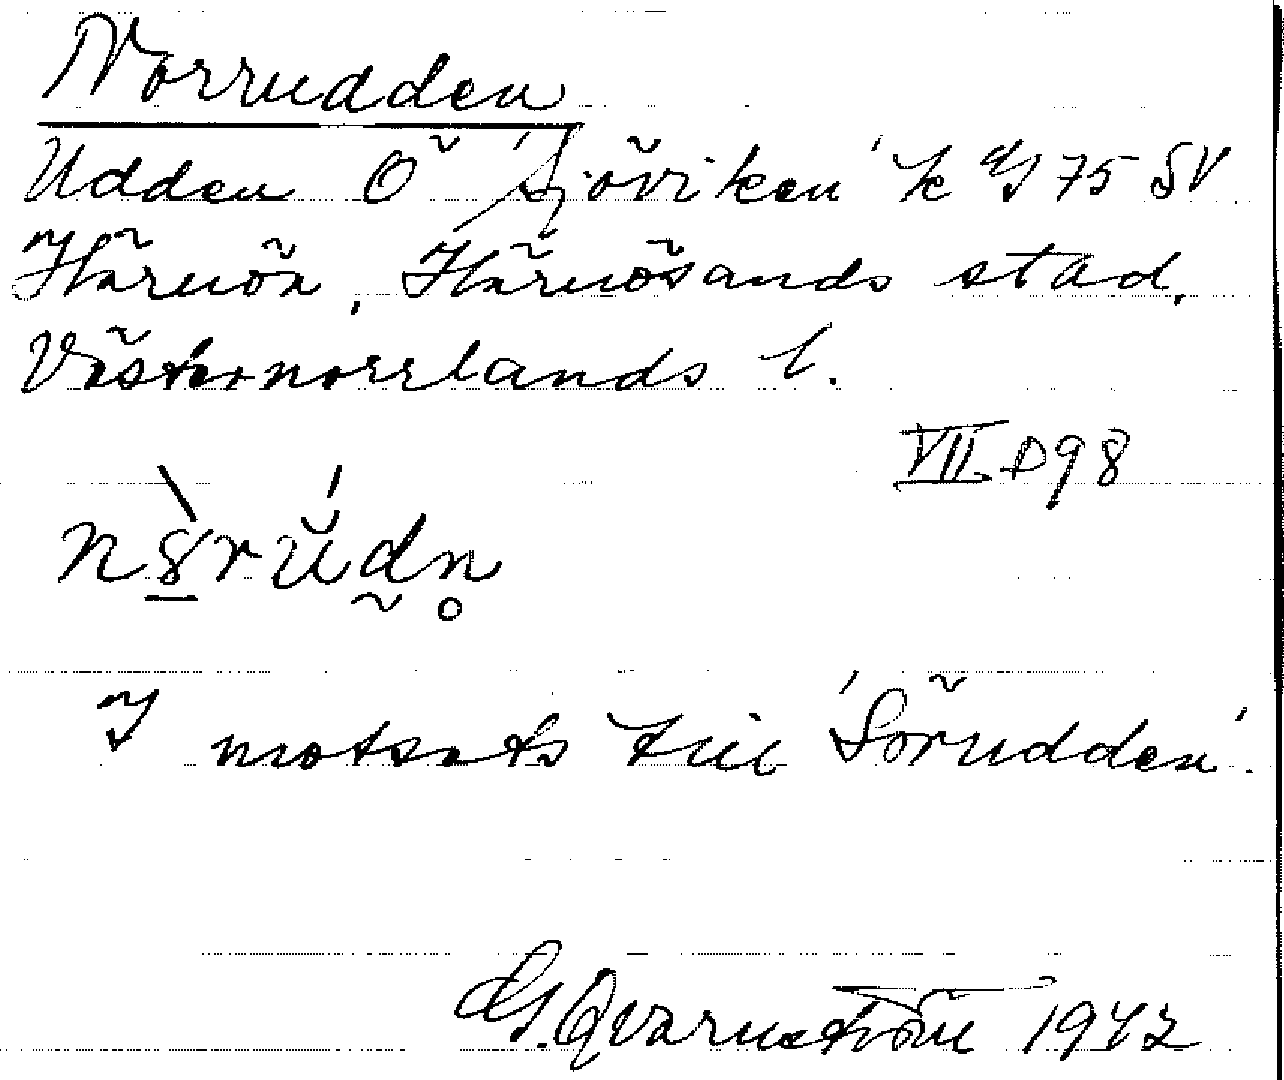 Norrudden
Udden Ö 'Sjöviken' k G 75 SV
Härnön, Härnösands stad,
Västernorrlands l.
VII D98
I motsats till 'Sörudden'.
G. Qvarnström 1942